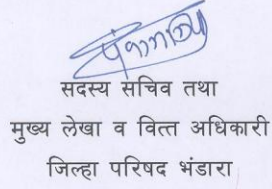 सदस्य सचिव तथा
मुख्य लेखा व वित्त अधिकारी
जिल्हा परिषद भंडारा